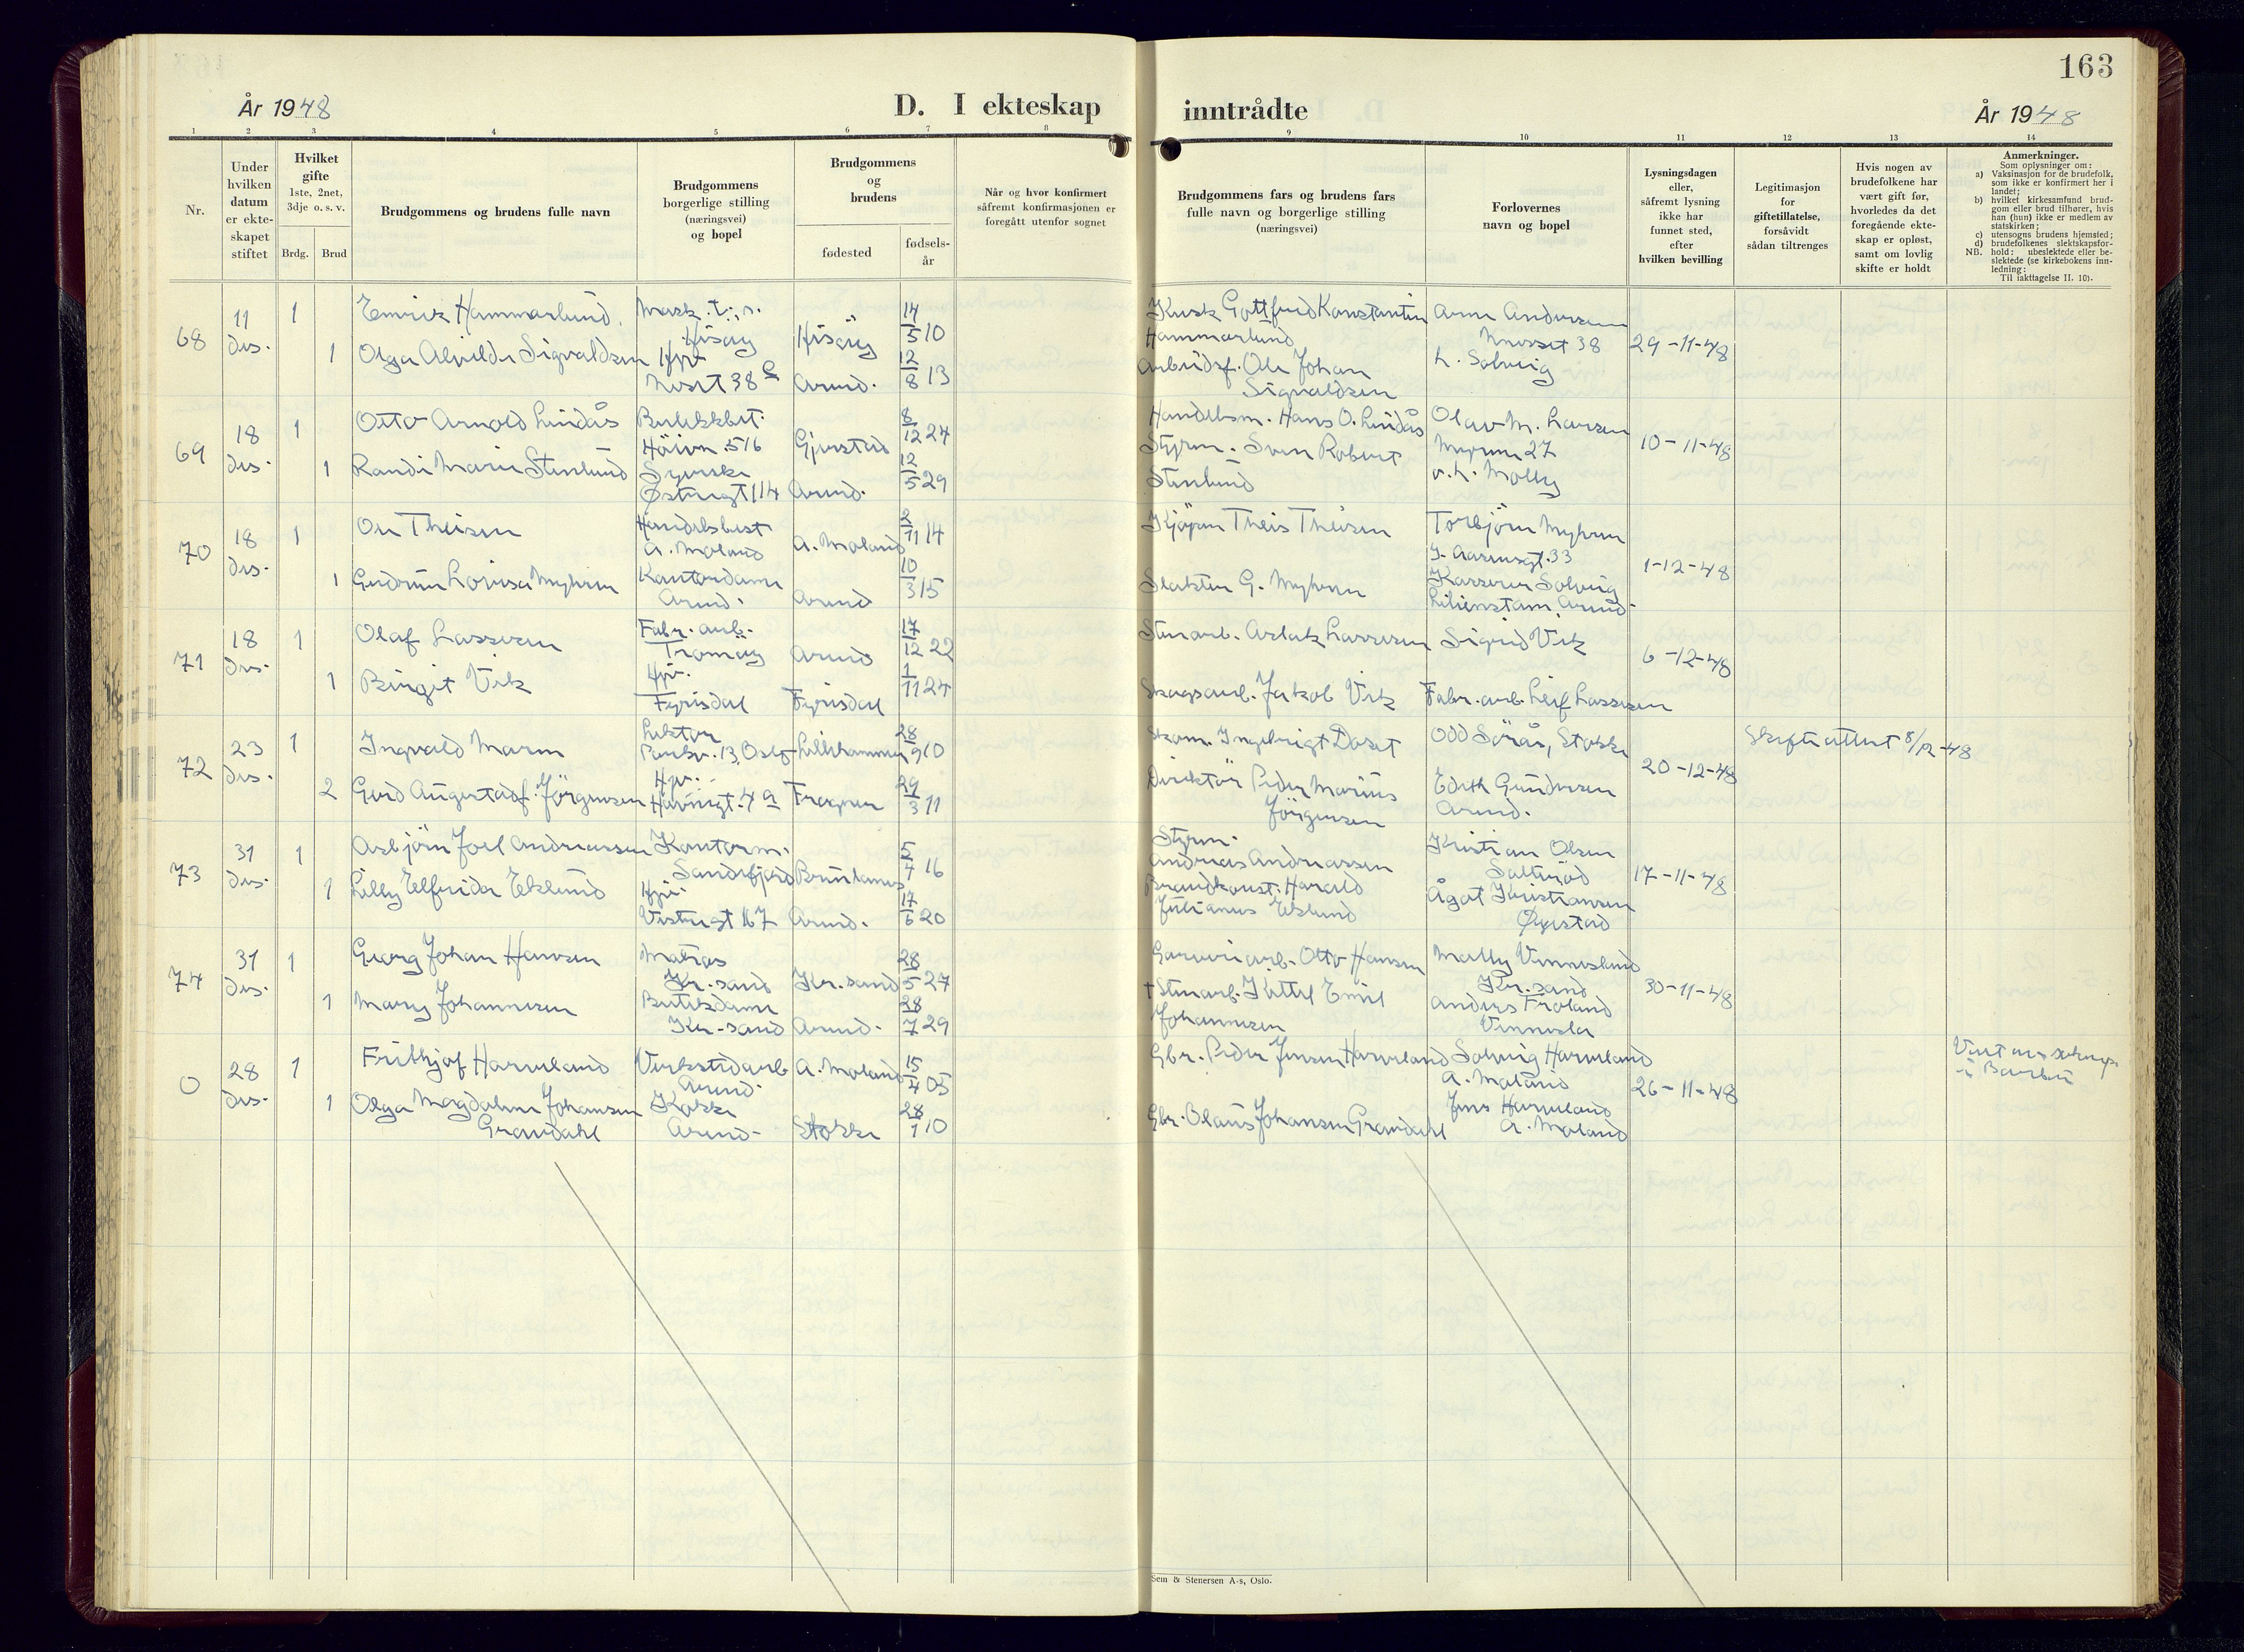 163
År 1948
D. I ekteskap
inntrådte
År 1948
1 2 3 4 5 6 7 8 9 10 11 12 13 14
Nr.
Under hvilken datum er ekteskapet stiftet
Hvilket gifte
1ste, 2net, 3dje o. s. v.
Brdg. Brud
Brudgommens og brudens fulle navn
Brudgommens borgerlige stilling (næringsvei) og bopel
Brudgommens og brudens
fødested
fødsels-år
Når og hvor konfirmert såfremt konfirmasjonen er foregått utenfor sognet
Brudgommens fars og brudens fars fulle navn og borgerlige stilling (næringsvei)
Forlovernes navn og bopel
Lysningsdagen eller, såfremt lysning ikke har funnet sted, efter hvilken bevilling
Legitimasjon for giftetillatelse, forsåvidt sådan tiltrenges
Hvis nogen av brudefolkene har vært gift før, hvorledes da det foregående ekteskap er opløst, samt om lovlig skifte er holdt
Anmerkninger.
Som oplysninger om:
a) Vaksinasjon for de brudefolk, som ikke er konfirmert her i landet;
b) hvilket kirkesamfund brudgom eller brud tilhører, hvis han (hun) ikke er medlem av statskirken;
c) utensogns brudens hjemsted;
d) brudefolkenes slektskapsforhold: ubeslektede eller beslektede (se kirkebokens innledning:
NB.
Til iakttagelse II. 10).
68 11 des. 1 Emrik Hammarlund Mask. Hisøy Hisøy 14/5 10 Kusk Gottfred Konstantin Hammarlund Arne Andersen Neset 38 29-11-48
1 Olga Alvilde Sigvaldsen Hjv. Neset 38 Arend. 12/8 13 Arbeidsf. Ole Johan Sigvaldsen L. Solveig
69 18 des. 1 Otto Arnold Lindås Butikkbet. Höivn. 516 Gjerstad 8/12 24 Handelsm. Hans O. Lindås Olav M. Larsen Myrene 27 10-11-48
1 Randi Marie Stenlund Syerske Østregt 114 Arend. 12/5 29 Styrm. Sven Robert Stenlund o. h. Molly
70 18 des. 1 Ole Theisen Handelsbest A. Moland A. Moland 2/11 14 Kjøpm Theis Theisen Torbjörn Myhren J. Aasensgt. 33 1-12-48
1 Gudrun Lovisa Myhren Kontordame Arend. Arend 10/3 15 Slakter G. Myhren Kasserer Solveig Lilienstam, Arend.
71 18 des. 1 Olaf Lassesen Fabr. arb. Tromøy Arend 17/12 22 Stenarb. Aslak Lassesen Sigrid Vik 6-12-48
1 Birgit Vik Hjv. Fyrisdal Fyrisdal 1/11 24 Skogsarb. Jakob Vik Fabr. arb. Leif Lassesen
72 23 des. 1 Ingvald Marm Lektor 13, Oslo Lillehammer 28/9 10 Skom. Ingebrigt Doset Odd Sörås, Stokke 20-12-48 Skifteattest 8/12-48
2 Gerd Augusta Jörgensen Hjv. Havnegt. 4 a Tragøen 29/3 11 Direktør Peder Marius Jörgensen Edith Gundersen Arend.
73 31 des. 1 Asbjörn Joel Andreassen Kontorm. Sandefjord Brunlanes 5/4 16 Styrm. Andreas Andreassen Kristian Olsen Saltröd 17-11-48
1 Lilly Elfrida Eklund Hjv. Vestregt 167 Arend. 17/6 20 Brandkonst. Harald Julianus Eklund Ågot Kristiansen Øyestad
74 31 des. 1 Georg Johan Hansen Matros Kr. sand Kr. sand 28/5 27 Garveriarb. Otto Hansen Mally Vennesland Kr. sand 30-11-48
1 Mary Johannesen Butikdame Kr. sand Arend. 28/7 29 † Stenarb. Kittel Emil Johannesen Anders Froland Vennesla
0 28 des. 1 Frithjof Harveland Verkstedarb Arend. A. Moland 15/4 05 Gbr. Peder Jensen Harveland Solveig Harveland A. Moland 26-11-48 i Barbu
1 Olga Magdalene Johansen Grandahl Kokke Arend. Stokke 28/1 10 Gbr. Olaus Johansen Grandahl Jens Harveland A. Moland
Sem & Stenersen A-s, Oslo.